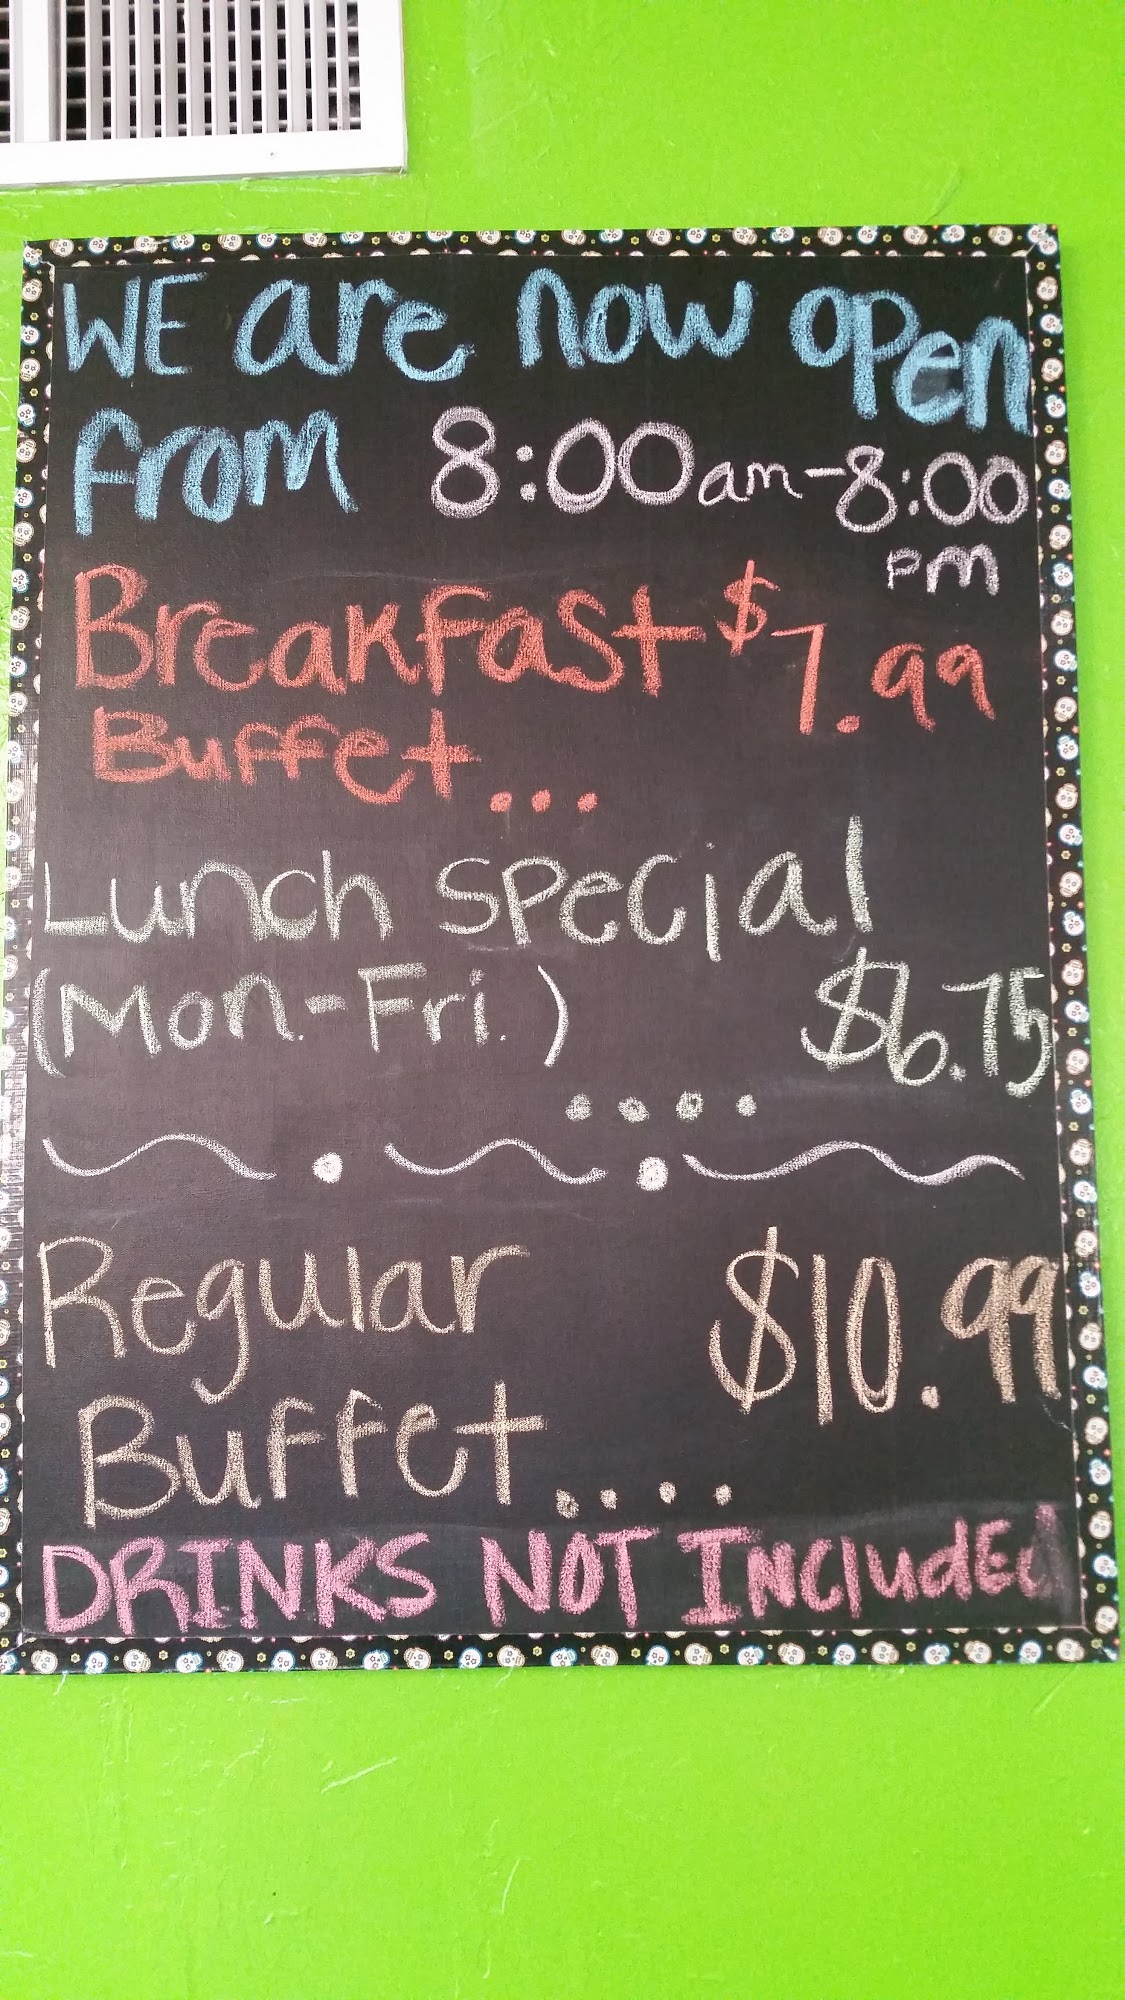 WE are now open
from 8:00am-8:00
pm
Breakfast $7.99
Buffet...
Lunch special
(Mon.-Fri.) $6.75
....
Regular $10.99
Buffet....
DRINKS NOT INcludEd